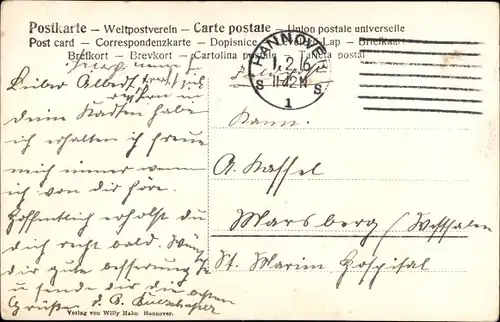 Postkarte – Weltpostverein – Carte postale – Union postale universelle
Post card – Correspondenzkarte – Dopisnice – Levelező-Lap – Briefkaart
Brefkort – Brevkort – Cartolina postale – Tarjeta postal
HANNOVER
1.2.6
11-12 N
S S
1
Lieber Albert
deine Karten habe
ich erhalten ich freue
mich immer wenn
ich von dir höre.
Hoffentlich erholst du
dich recht bald. Wünsche
dir gute besserung
u sende dir die besten
Grüße
A. Kassel
Marsberg / Westfalen
St. Marien Hospital
Verlag von Willy Hahn Hannover.